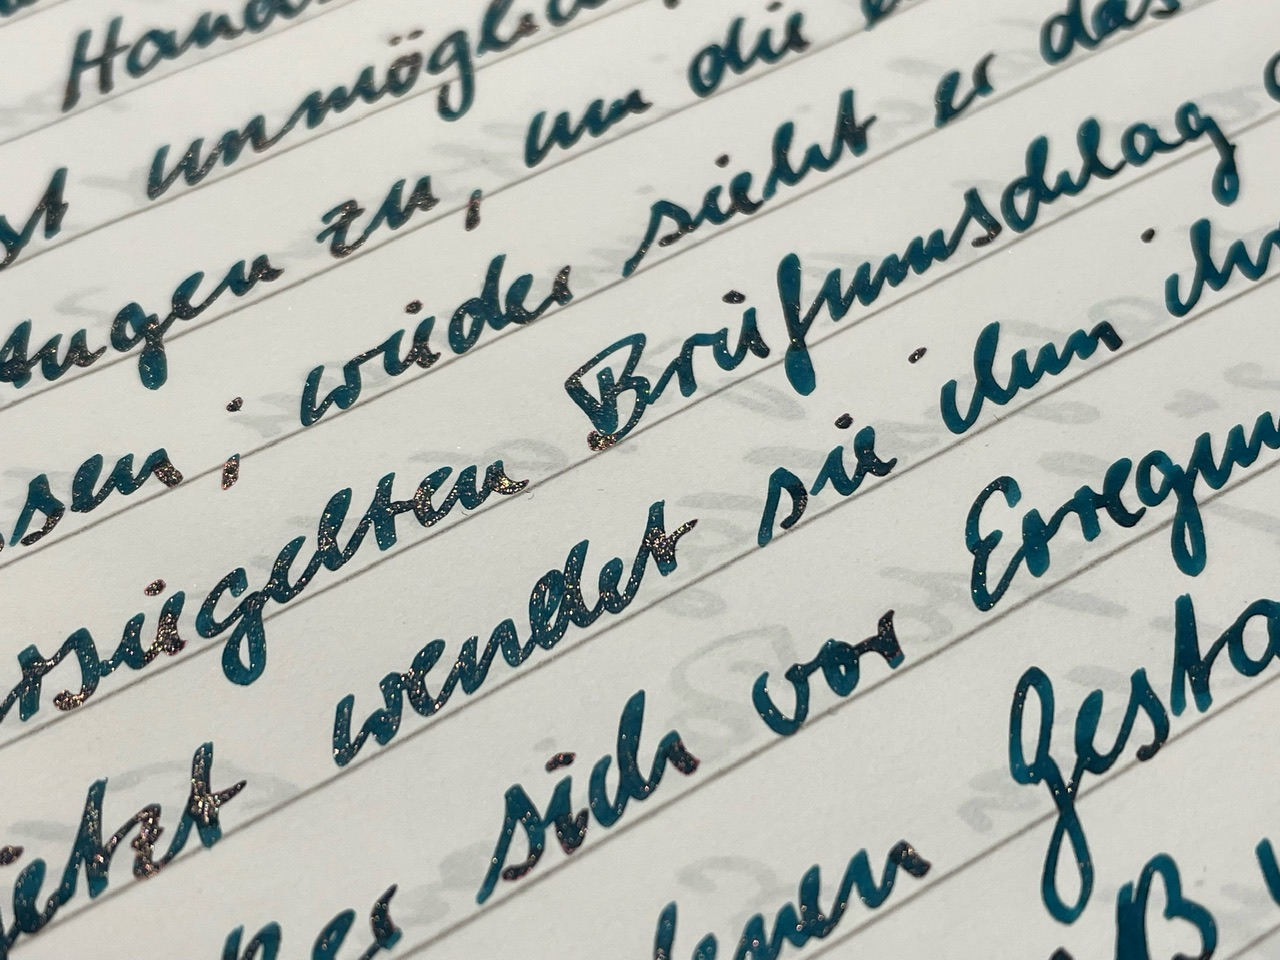 Hand
st unmögli
Augen zu, um die
ssen, wieder sieht er das
rsiegelten Briefumschlag
jetzt wendet sie ihm ihr
er sich vor Erregun
enen Gesta
ß